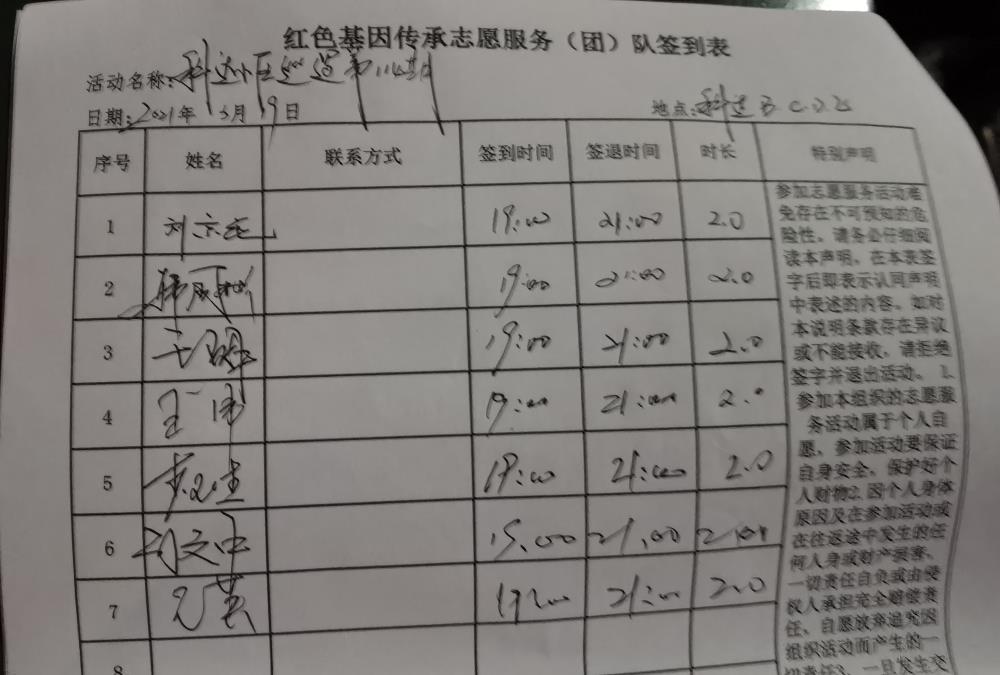 红色基因传承志愿服务（团）队签到表
活动名称：科达小区巡逻第114期
日期：2021年3月19日 地点：科达B C D 区
序号 姓名 联系方式 签到时间 签退时间 时长 特别声明
1 19:00 21:00 2.0
2 19:00 21:00 2.0
3 19:00 21:00 2.0
4 王 19:00 21:00 2.0
5 19:00 21:00 2.0
6 刘文中 19:00 21:00 2.0
7 19:00 21:00 2.0
8
参加志愿服务活动难
免存在不可预知的危
险性，请务必仔细阅
读本声明，在本表签
字后即表示认同声明
中表述的内容。如对
本说明条款存在异议
或不能接收，请拒绝
签字并退出活动。1、
参加本组织的志愿服
务活动属于个人自
愿，参加活动要保证
自身安全，保护好个
人财物2、因个人身体
原因及在参加活动或
在往返途中发生的任
何人身或财产损害，
一切责任自负或由侵
权人承担完全赔偿责
任，自愿放弃追究因
组织活动而产生的一
切责任3、一旦发生交